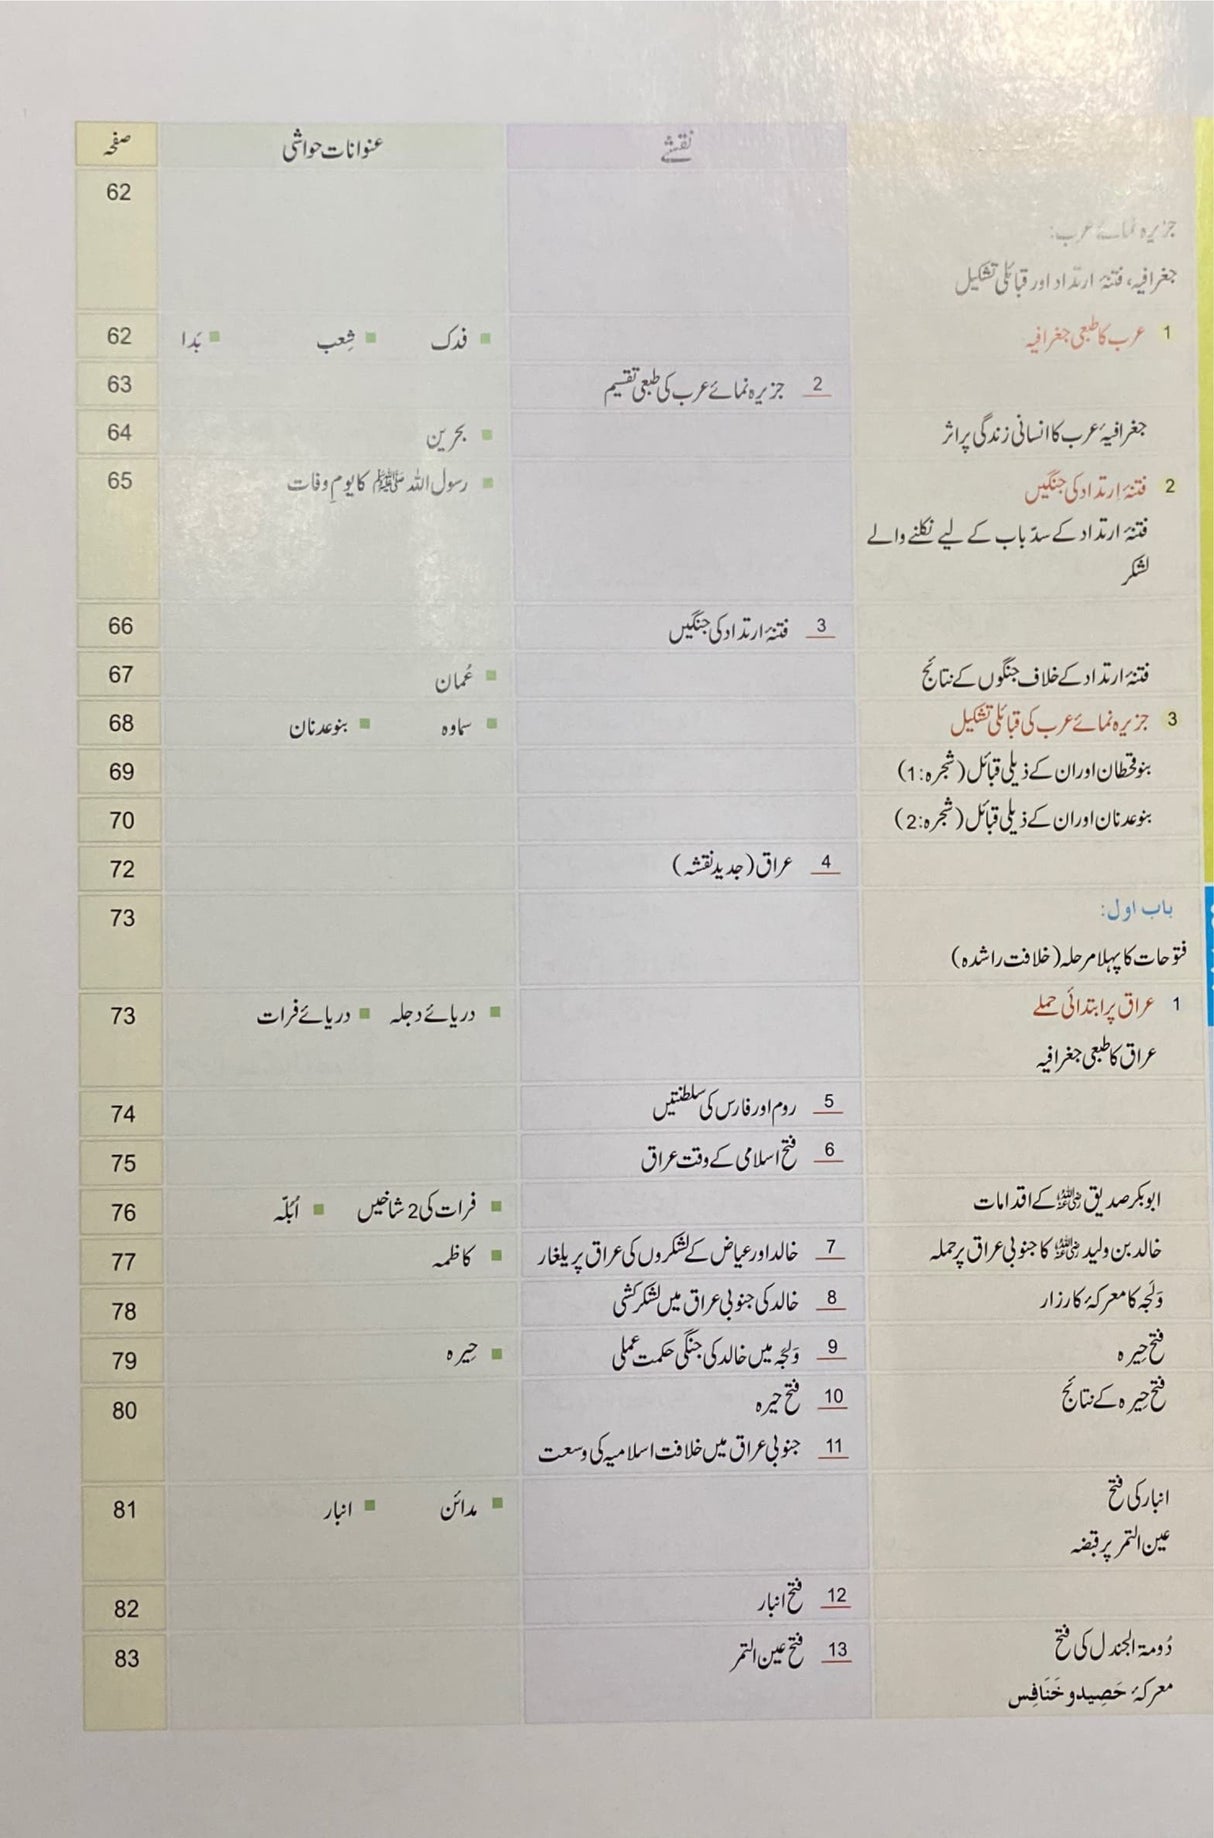 نقشے عنوانات حواشی صفحہ
62
جزیرہ نمائے عرب:
جغرافیہ، فتنۂ ارتداد اور قبائلی تشکیل
1 عرب کا طبعی جغرافیہ ■ فدک ■ شِعب ■ بَدا 62
2 جزیرہ نمائے عرب کی طبعی تقسیم 63
جغرافیۂ عرب کا انسانی زندگی پر اثر ■ بحرین 64
2 فتنۂ اِرتداد کی جنگیں ■ رسول اللہ ﷺ کا یومِ وفات 65
فتنۂ ارتداد کے سدّباب کے لیے نکلنے والے
لشکر
3 فتنۂ ارتداد کی جنگیں 66
فتنۂ ارتداد کے خلاف جنگوں کے نتائج ■ عُمان 67
3 جزیرہ نمائے عرب کی قبائلی تشکیل ■ سماوہ ■ بنو عدنان 68
بنو قحطان اور ان کے ذیلی قبائل (شجرہ:1) 69
بنو عدنان اور ان کے ذیلی قبائل (شجرہ:2) 70
4 عراق (جدید نقشہ) 72
باب اول: 73
فتوحات کا پہلا مرحلہ (خلافت راشدہ)
1 عراق پر ابتدائی حملے ■ دریائے دجلہ ■ دریائے فرات 73
عراق کا طبعی جغرافیہ
5 روم اور فارس کی سلطنتیں 74
6 فتح اسلامی کے وقت عراق 75
ابوبکر صدیق رضی اللہ عنہ کے اقدامات ■ فرات کی 2 شاخیں ■ اُبُلّہ 76
خالد بن ولید رضی اللہ عنہ کا جنوبی عراق پر حملہ 7 خالد اور عیاض کے لشکروں کی عراق پر یلغار ■ کاظمہ 77
وَلَجہ کا معرکۂ کارزار 8 خالد کی جنوبی عراق میں لشکر کشی 78
فتح حِیرہ 9 وَلَجہ میں خالد کی جنگی حکمت عملی ■ حِیرہ 79
فتح حِیرہ کے نتائج 10 فتح حیرہ 80
11 جنوبی عراق میں خلافت اسلامیہ کی وسعت
انبار کی فتح ■ مدائن ■ انبار 81
عین التمر پر قبضہ
12 فتح انبار 82
دُومۃ الجندل کی فتح 13 فتح عین التمر 83
معرکۂ حَصِید و خَنَافِس